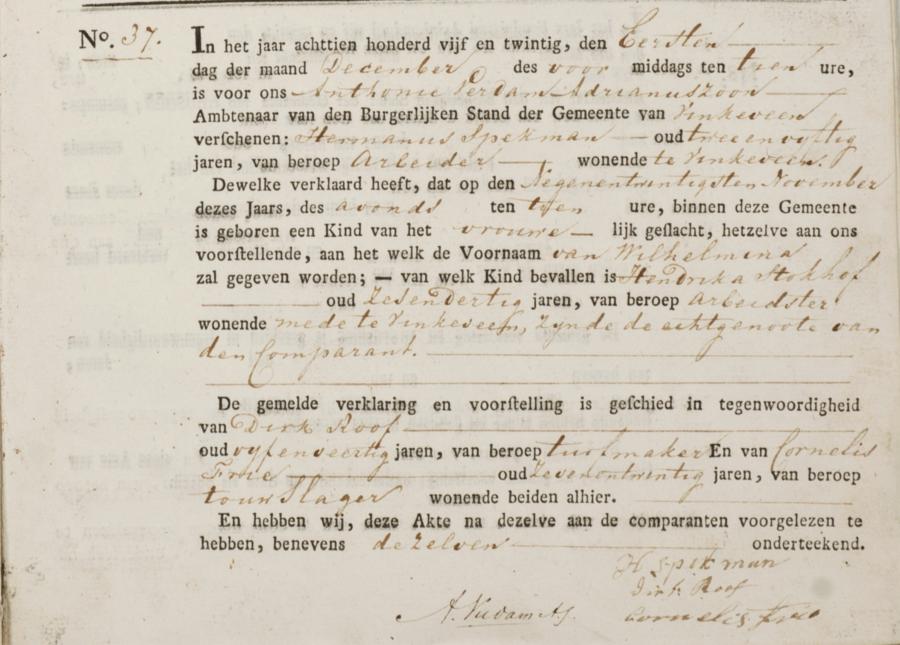 No. 37. In het jaar achttien honderd vijf en twintig, den Eersten
dag der maand December des voor middags ten tien ure,
is voor ons Anthonie Verdam Adrianuszoon
Ambtenaar van den Burgerlijken Stand der Gemeente van Vinkeveen
verschenen: Hermanus Spekman oud twee en vyftig
jaren, van beroep Arbeider wonende te Vinkeveen.
Dewelke verklaard heeft, dat op den Negenentwintigsten November
dezes Jaars, des avonds ten tien ure, binnen deze Gemeente
is geboren een Kind van het vrouwe lijk geslacht, hetzelve aan ons
voorstellende, aan het welk de Voornaam van Wilhelmina
zal gegeven worden; — van welk Kind bevallen is Hendrika Stokhof
oud Zesendertig jaren, van beroep Arbeidster
wonende mede te Vinkeveen, zynde de echtgenoote van
den Comparant.
De gemelde verklaring en voorstelling is geschied in tegenwoordigheid
van Dirk Roof
oud vyfenveertig jaren, van beroep turfmaker En van Cornelis
Frie oud Zevenentwintig jaren, van beroep
touwslager wonende beiden alhier.
En hebben wij, deze Akte na dezelve aan de comparanten voorgelezen te
hebben, benevens dezelven onderteekend.
H spekman
Dirk Roof
A. Verdam Az.
Cornelis frie